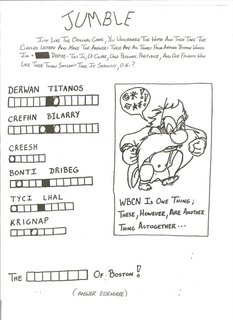 JUMBLE
Just Like The Original Game, You Unscramble The Word And Then Take The
Circled Letters And Make The Answer. These Are All Things From Around Boston Which
Jim & Despise. This Is, Of Course, Our Personal Preference, And Our Friends Who
Like These Things Shouldn't Take It Seriously, O.K.?
DERWAN TITANOS
CREFHN BILARRY
CREESH
BONTI DRIBEG
TYCI LHAL
KRIGNAP
WBCN Is One Thing;
These, However, Are Another
Thing Altogether...
The Of Boston!
(Answer Elsewhere)